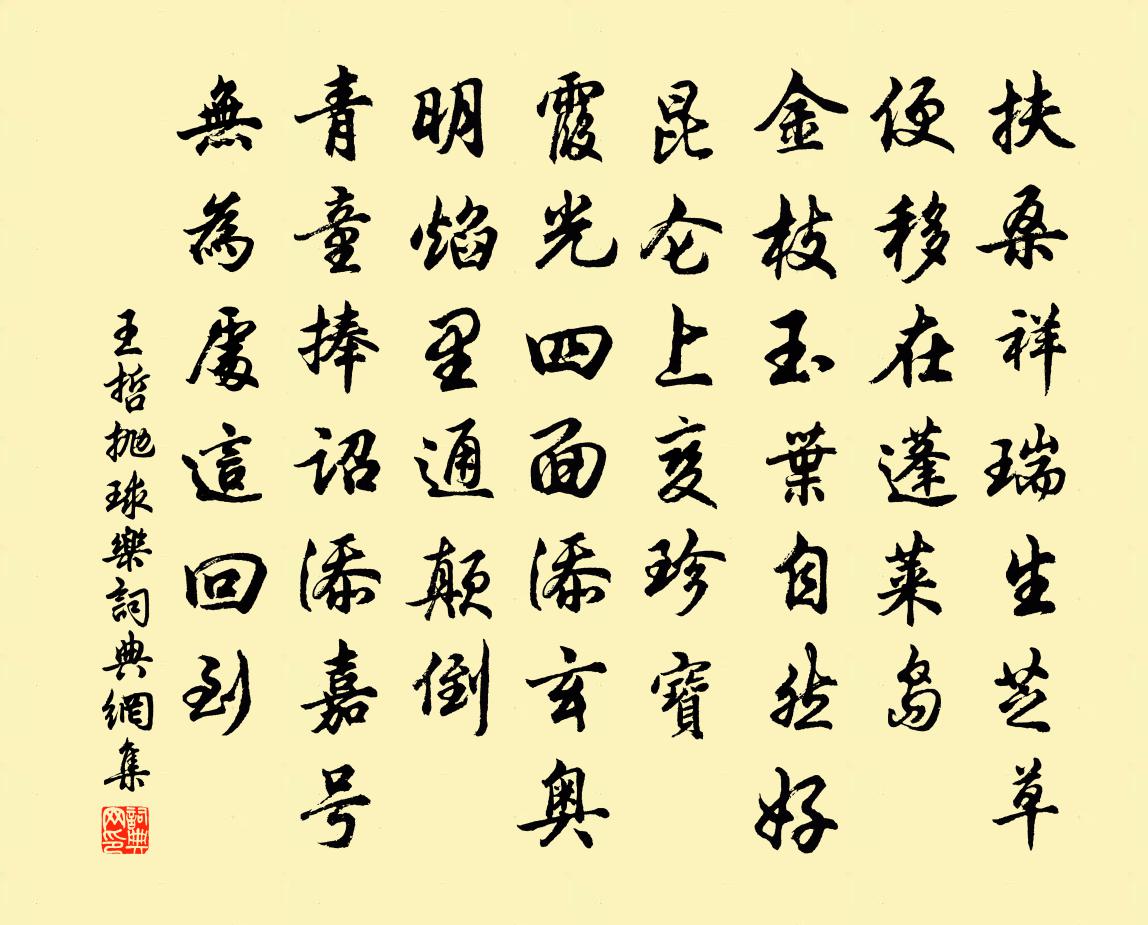 扶桑祥瑞生芝草
便移在蓬莱岛
金枝玉葉自然好
昆仑上变珍寶
霞光四面添玄奥
明焰里通颠倒
青童捧诏添嘉号
無為處這回到
王哲抛球樂詞典網集
詞典网印